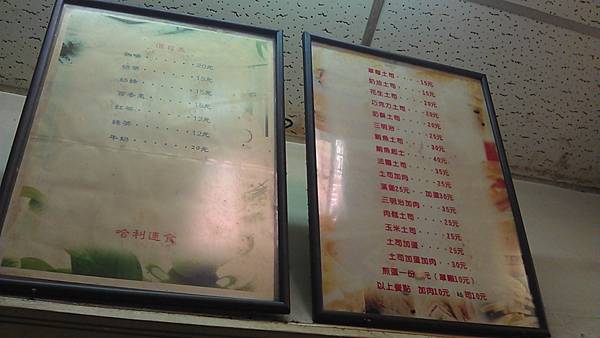 價目表
咖啡‥‥‥20元
奶茶‥‥‥15元
奶綠‥‥‥15元
百香果‥‥‥15元
紅茶‥‥‥12元
綠茶‥‥‥12元
牛奶‥‥‥20元
哈利速食
草莓土司‥‥15元
奶油土司‥‥15元
花生土司‥‥20元
巧克力土司‥‥20元
奶酥土司‥‥20元
三明治‥‥25元
鮪魚土司‥‥30元
鮪魚起士‥‥40元
法國土司‥‥35元
土司加肉‥‥35元
漢堡25元‥加蛋30元
三明治加肉‥‥35元
肉鬆土司‥‥25元
玉米土司‥‥25元
土司加蛋‥‥25元
土司加蛋加肉‥‥30元
煎蛋一份 元(單顆10元)
以上餐點 加肉10元 司10元